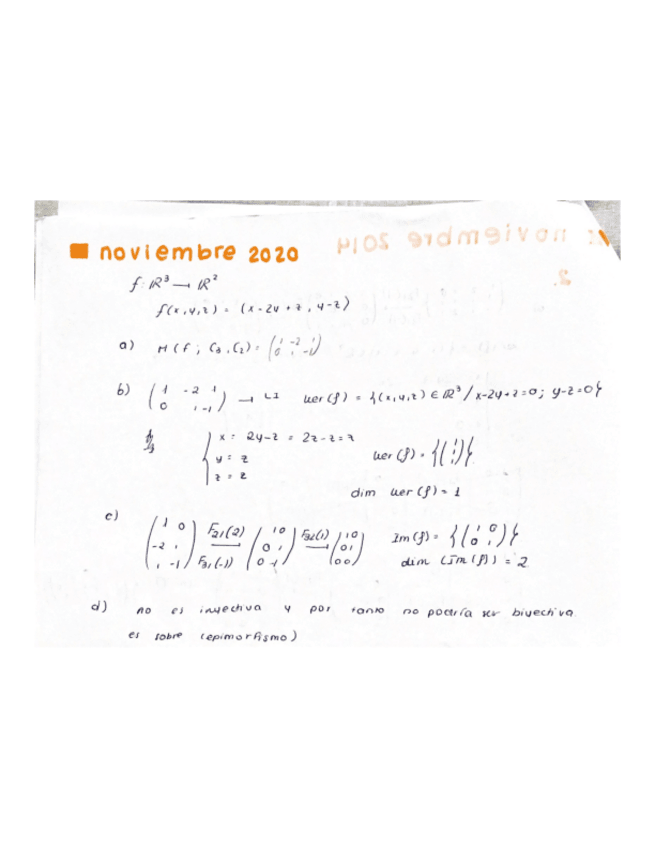 noviembre 2020
f: ℝ³ → ℝ²
f(x,y,z) = (x-2y+z, y-z)
a) M(f; C₃, C₂) = (1 -2 1
0 1 -1)
b) (1 -2 1
0 1 -1) → LI ker(f) = {(x,y,z) ∈ ℝ³ / x-2y+z=0; y-z=0}
{ x = 2y-z = 2z-z = z
y = z
z = z
ker(f) = {(1 1 1)}
dim ker(f) = 1
c) (1 0
-2 1
1 -1) F₂₁(2) F₃₁(-1) → (1 0
0 1
0 -1) F₃₂(1) → (1 0
0 1
0 0) Im(f) = {(1 0
0 1)}
dim (Im(f)) = 2
d) no es inyectiva y por tanto no podría ser biyectiva.
es sobre (epimorfismo)
noviembre 2014
2.